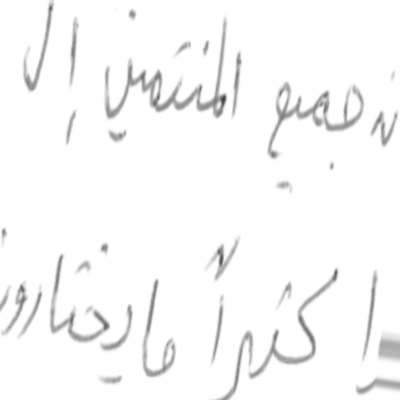 جميع المنتمين إل
كثيراً ما يختارو